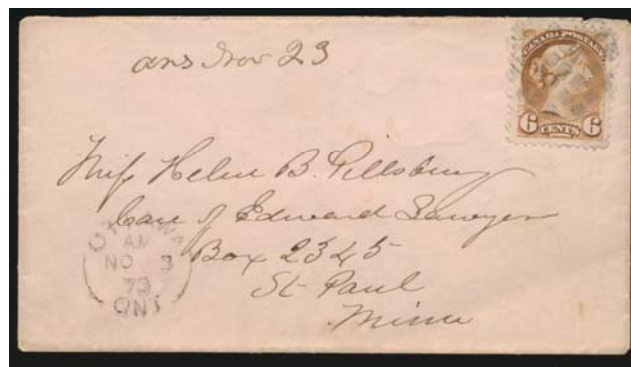 ans Nov 23
CANADA POSTAGE
6 CENTS 6
Miss Helen B. Pillsbury
Care of Edward Sawyer
Box 2345
St Paul
Minn
OTTAWA
AM
NO 3
73
ONT